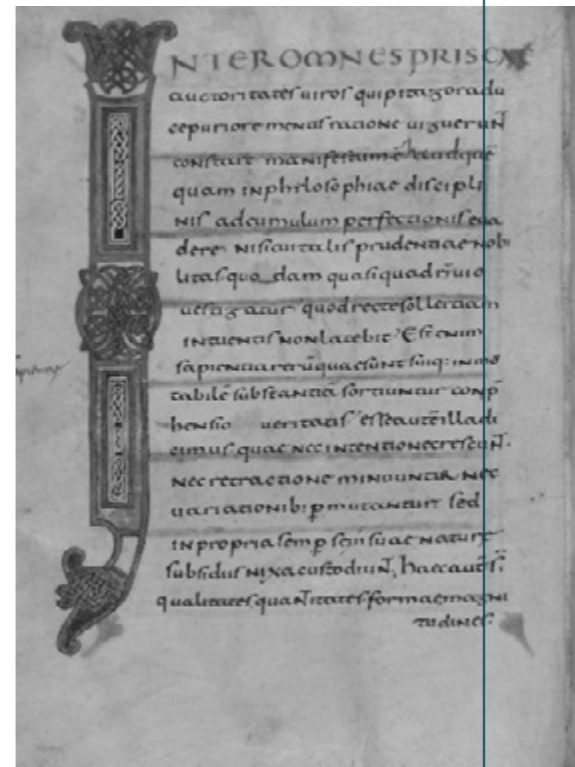 INTER OMNES PRISCAE
auctoritatis uiros qui pitagora du
ce puriore mentis ratione uiguerunt̄
constare manifestum ē haud quē
quam in philosophiae discipli
nis ad cumulum perfectionis eua
dere nisi cui talis prudentiae nobi
litas quo dam quasi quadriuio
uestigatur quod recte sollertiam
intuentis non latebit Est enim
sapientia rerū quae sunt suiq: inmo
tabilē substantiā sortiuntur conp̄
hensio ueritatis esse autē illa di
cimus quae nec intentione crescunt̄.
nec retractione minuuntur nec
uariationib: p̄mutantur sed
in propria semp̄ suae naturae
subsidiis nixa custodiunt̄, haec autē st̄:
qualitates quantitates formae magni
tudines: